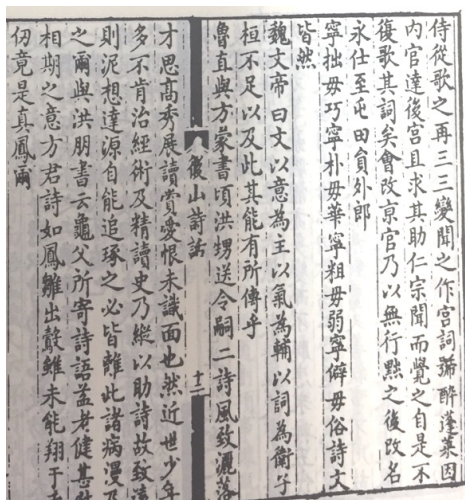 侍從歌之再三三變聞之作宮詞號醉蓬萊因
內官達後宮且求其助仁宗聞而覺之自是不
復歌其詞矣會改京官乃以無行黜之後改名
永仕至屯田員外郎
寧拙毋巧寧朴毋華寧粗毋弱寧僻毋俗詩文
皆然
魏文帝曰文以意為王以氣為輔以詞為衛子
桓不足以及此其能有所傳乎
魯直與方蒙書頃洪甥送令嗣二詩風致灑落
後山詩話
十二
才思高秀展讀賞愛恨未識面也然近世少年
多不肯治經術及精讀史乃縱以助詩故致遠
則泥想達源自能追琢之必皆離此諸病漫及
之爾與洪朋書云龜父所寄詩語益老健甚
相期之意方君詩如鳳雛出鷇雖未能翔于
仞竟是真鳳爾